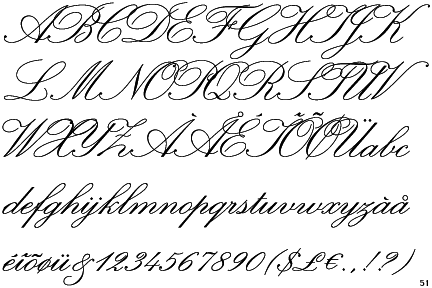 ABCDEFGHIJK
LMNOPQRSTUV
WXYZÀÅÉÎÕØÜabc
defghijklmnopqrstuvwxyzàå
éîõøü&1234567890($£€.,!?)
51